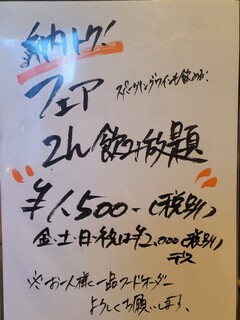 納トク!
フェア
スパークリングワインも飲める!
2h飲み放題
¥1,500-(税別)
金・土・日・祝は¥2,000(税別)
デス
※お一人様に一品フードオーダー
よろしくお願いします。